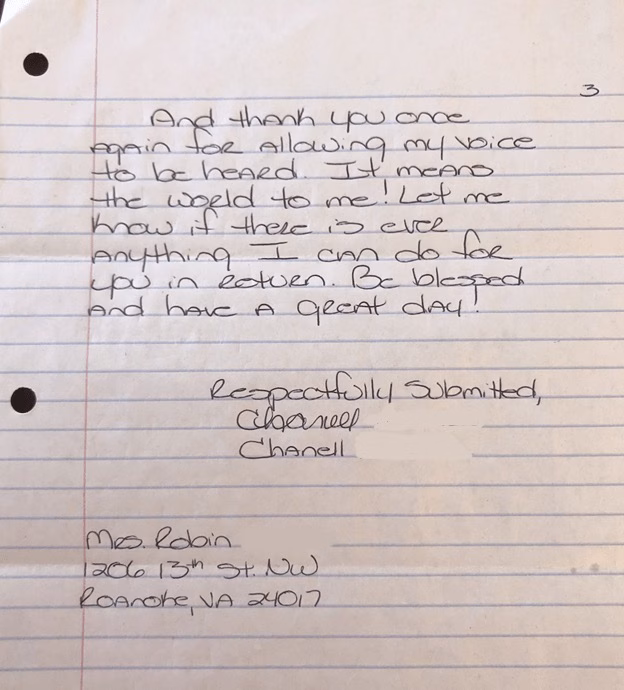 3
And thank you once
again for allowing my voice
to be heard. It means
the world to me! Let me
know if there is ever
anything I can do for
you in return. Be blessed
and have a great day!
Respectfully Submitted,
Chanell
Chanell
Mrs. Robin
1206 13th St. NW
Roanoke, VA 24017